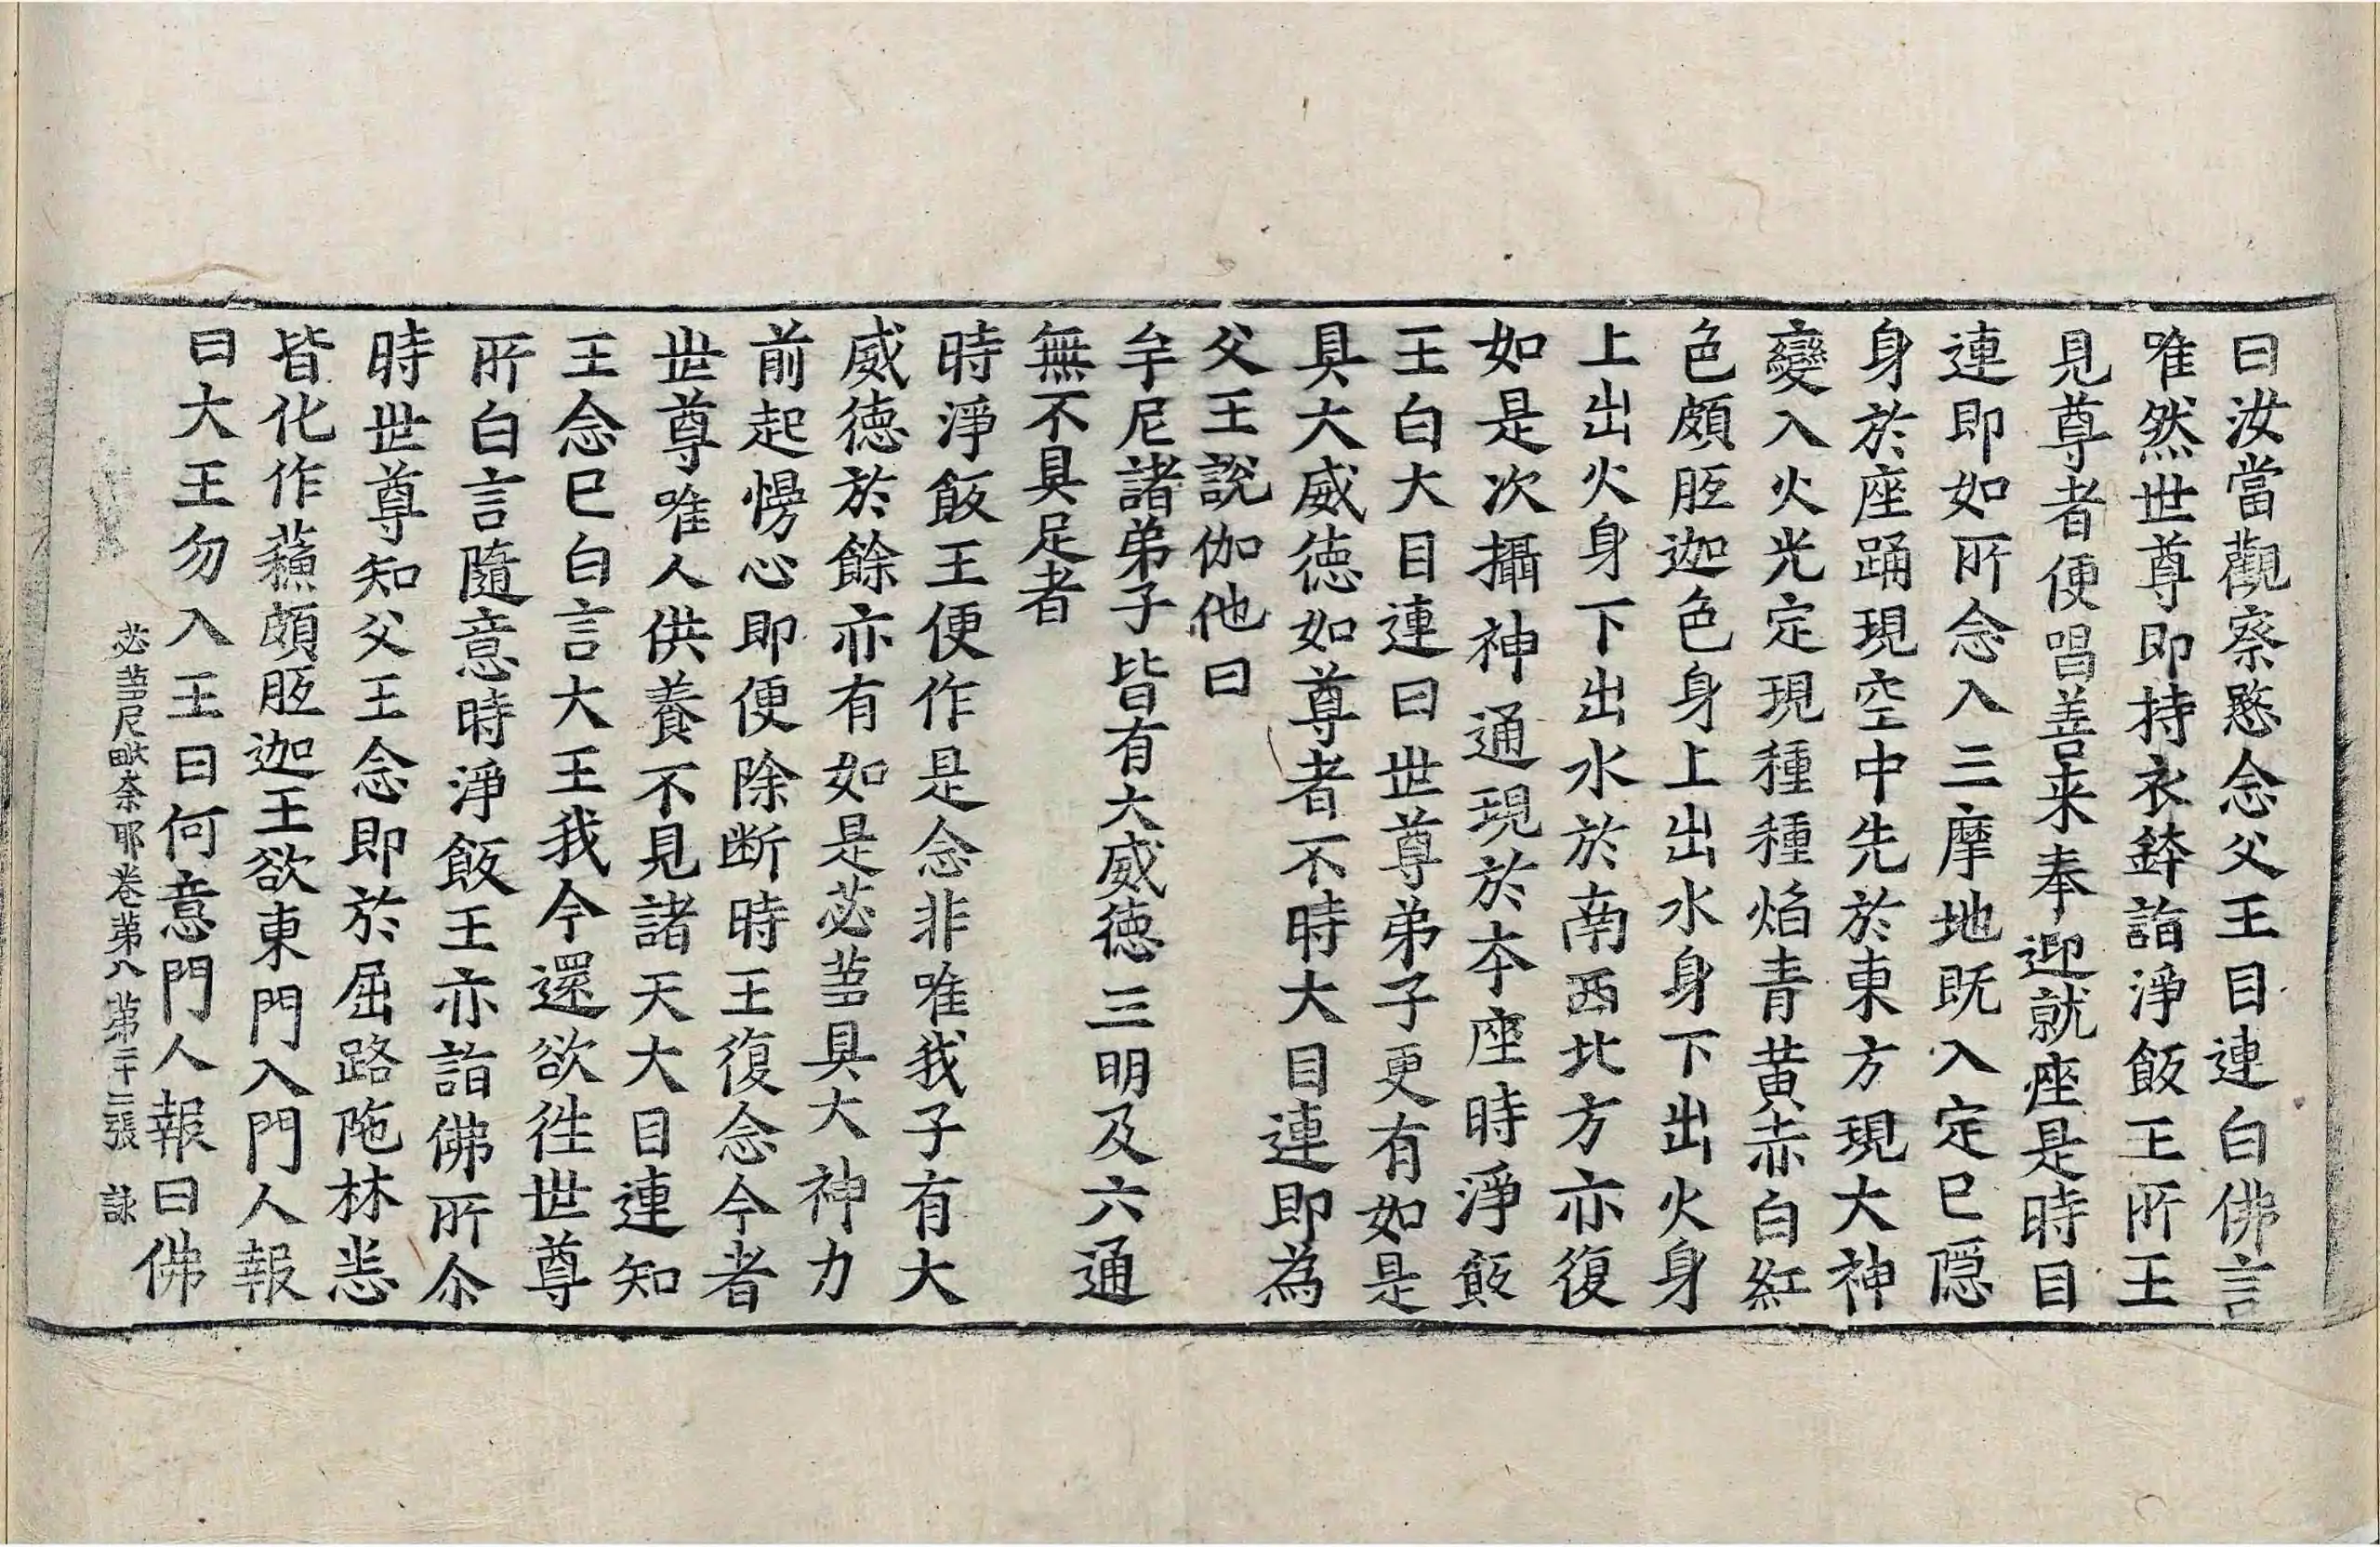 曰汝當觀察愍念父王目連白佛言
唯然世尊即持衣鉢詣淨飯王所王
見尊者便唱善来奉迎就座是時目
連即如所念入三摩地既入定已隱
身於座踊現空中先於東方現大神
變入火光定現種種焰青黃赤白紅
色頗胝迦色身上出水身下出火身
上出火身下出水於南西北方亦復
如是次攝神通現於夲座時淨飯
王白大目連曰世尊弟子更有如是
具大威徳如尊者不時大目連即為
父王說伽他曰
牟尼諸弟子皆有大威徳三明及六通
無不具足者
時淨飯王便作是念非唯我子有大
威徳於餘亦有如是苾蒭具大神力
前起慢心即便除断時王復念今者
世尊唯人供養不見諸天大目連知
王念已白言大王我今還欲徃世尊
所白言隨意時淨飯王亦詣佛所尒
時世尊知父王念即於屈路陁林悉
皆化作蘓頗胝迦王欲東門入門人報
曰大王勿入王曰何意門人報曰佛
苾蒭尼毗奈耶卷第八 第二十二張 詠